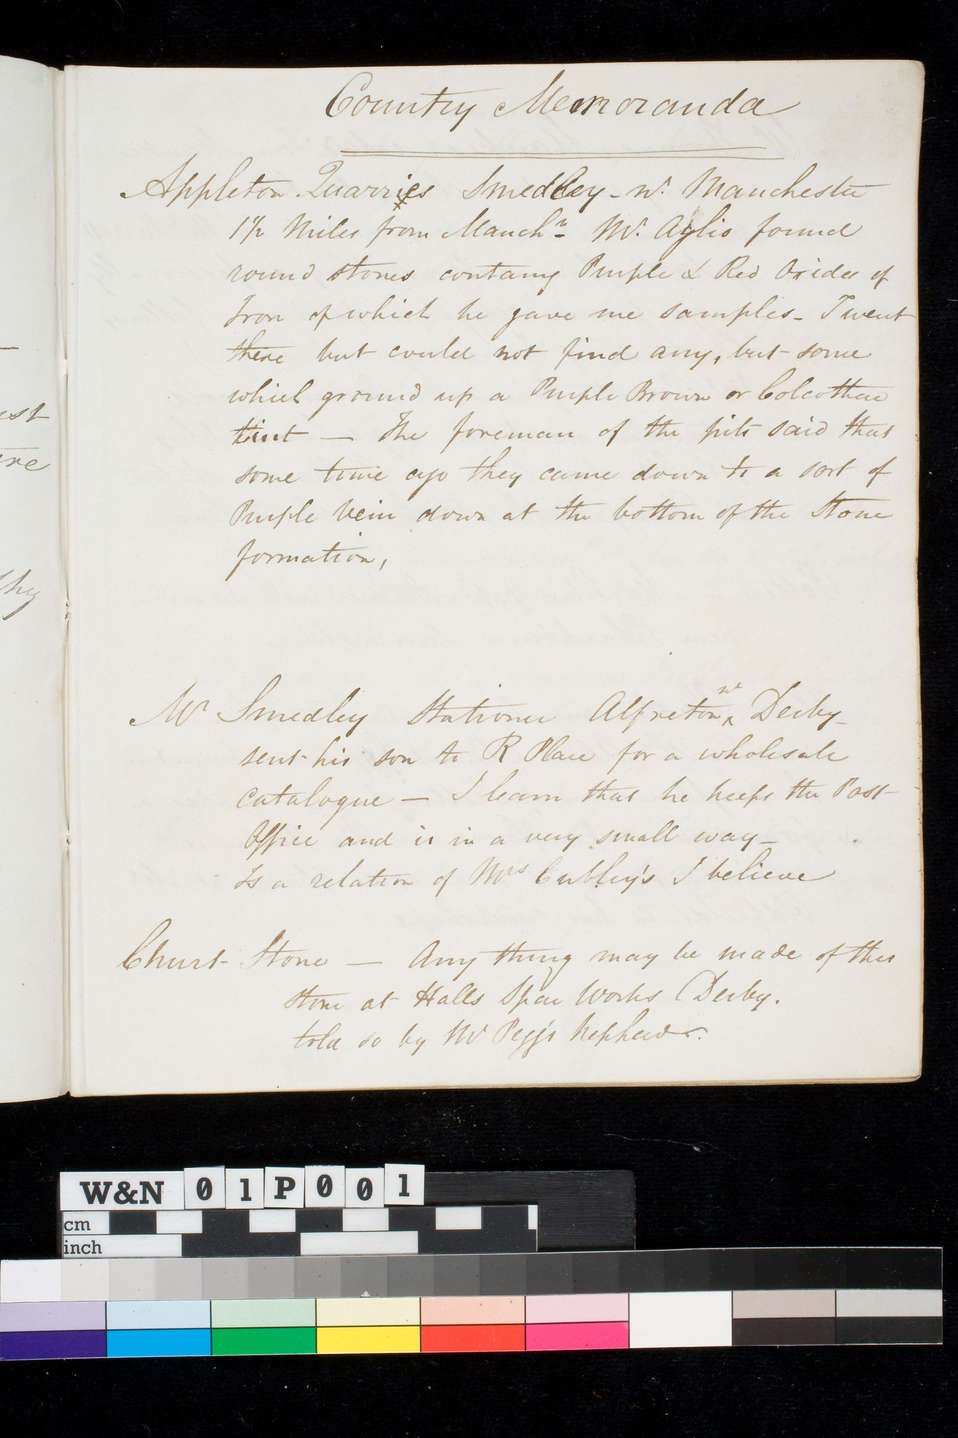 Country Memoranda
Appleton Quarries Smedley - nr. Manchester
1½ Miles from Manchr. Mr. Aglio found
round stones containg Purple & Red Oxides of
Iron of which he gave me samples - I went
there but could not find any, but some
which ground up a Purple Brown or Colcothar
tint — The foreman of the pits said that
some time ago they came down to a sort of
Purple Vein down at the bottom of the Stone
formation,
Mr Smedley Stationer Alfreton nr Derby -
sent his son to R Place for a wholesale
catalogue — I learn that he keeps the Post
Office and is in a very small way -
Is a relation of Mrs Cubley's I believe
Churt Stone — Any thing may be made of this
stone at Halls Spar Works (Derby.
told so by Mr Pegg's Nephew.
est
ire
hy
W&N 01P001
cm
inch